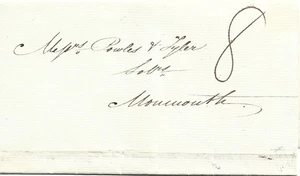 Messrs. Powles & Tyler 8
Solrs.
Monmouth.